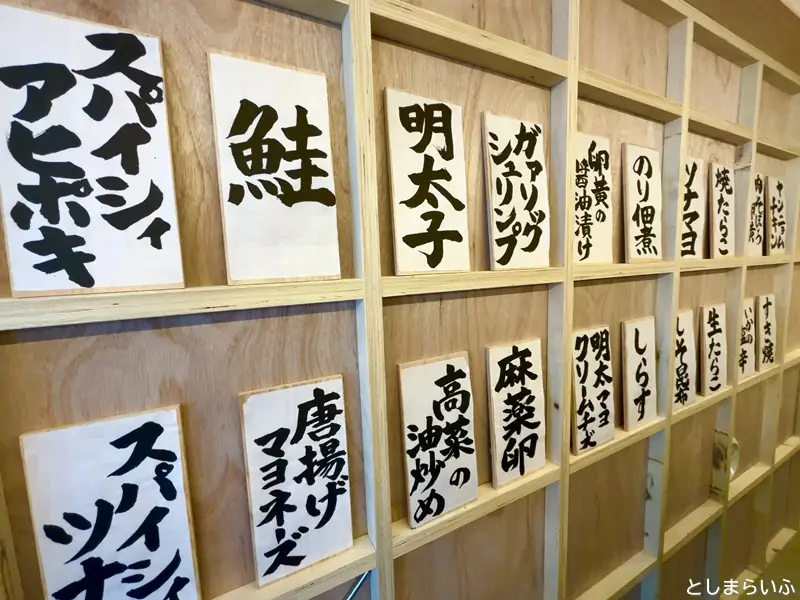 スパイシィ
アヒポキ
鮭
明太子
ガァリック
シュリンプ
卵黄の
醤油漬け
のり佃煮
ツナマヨ
焼たらこ
肉そぼろ
ヤンニョム
チキン
スパイシィ
ツナ
唐揚げ
マヨネーズ
高菜の
油炒め
麻薬卵
明太マヨ
クリームチーズ
しらす
しそ昆布
生たらこ
いかの塩辛
すき焼
としまらいふ